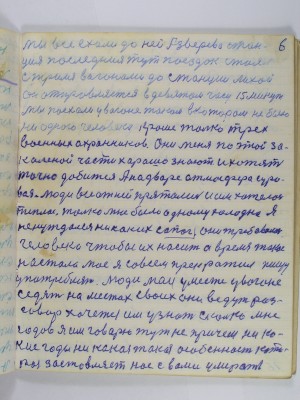 6
мы все ехали до ней Гзверева стан-
ция последния тут поездок стоял
с тремя вагонами до станции лихой
он отправляется в девятом часу 15 минут
мы поехали у вагоне таком в котором не было
ни одного человека кроме толко трех
военных охранников. Они меня по этой за-
каленой части харашо знают и хотят
точно добится А на дваре атмосфера суро-
вая. Люди все от ней прятолис и им хотелос
типла, толко мне было одному холодна Я
ненуждался ни каких сапог, они требовали
человека чтобы их насит а время такое
настала мое я совсем прекратил пищу
употреблят. Люди маи у месте у вагоне
седят на местах своих они ведут раз-
говор хочется им узнат сколко мне
годов Я им говарю тут не причем ни ка-
кие годы ни какая такая особенност кото-
рая заставляет нас с вами умират